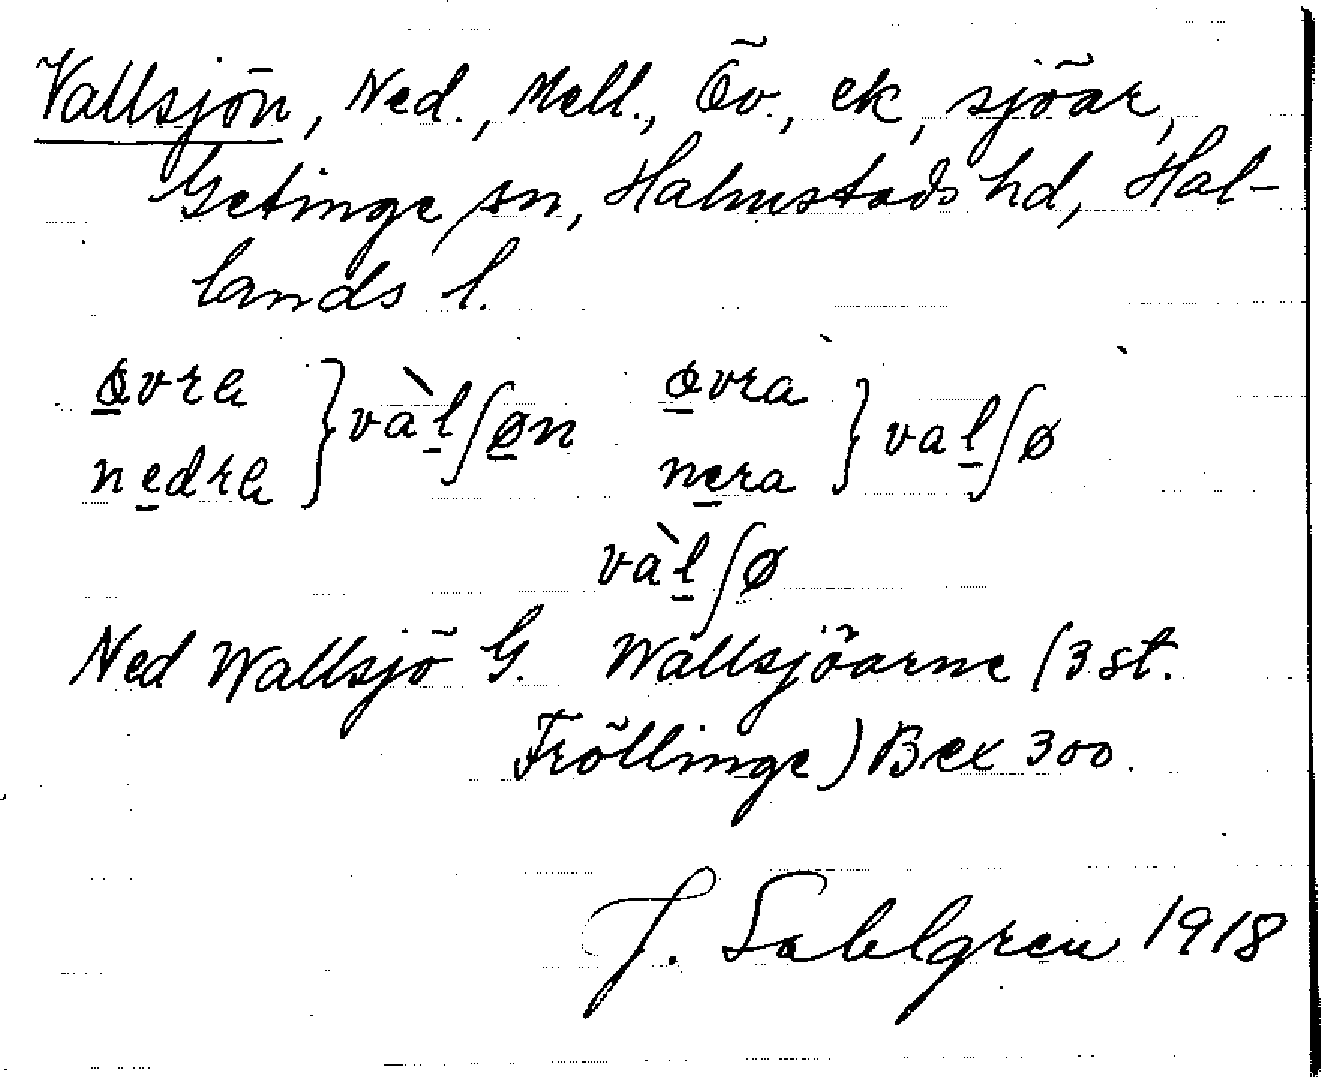 Vallsjön, Ned., Mell., Öv., ek, sjöar,
Getinge sn, Halmstads hd, Hal-
lands l.
øvra } vàlʃøn øvra } valʃø
nedra nera
vàlʃø
Ned Wallsjö G. Wallsjöarne (3 st.
Fröllinge) Bex 300.
J. Sahlgren 1918